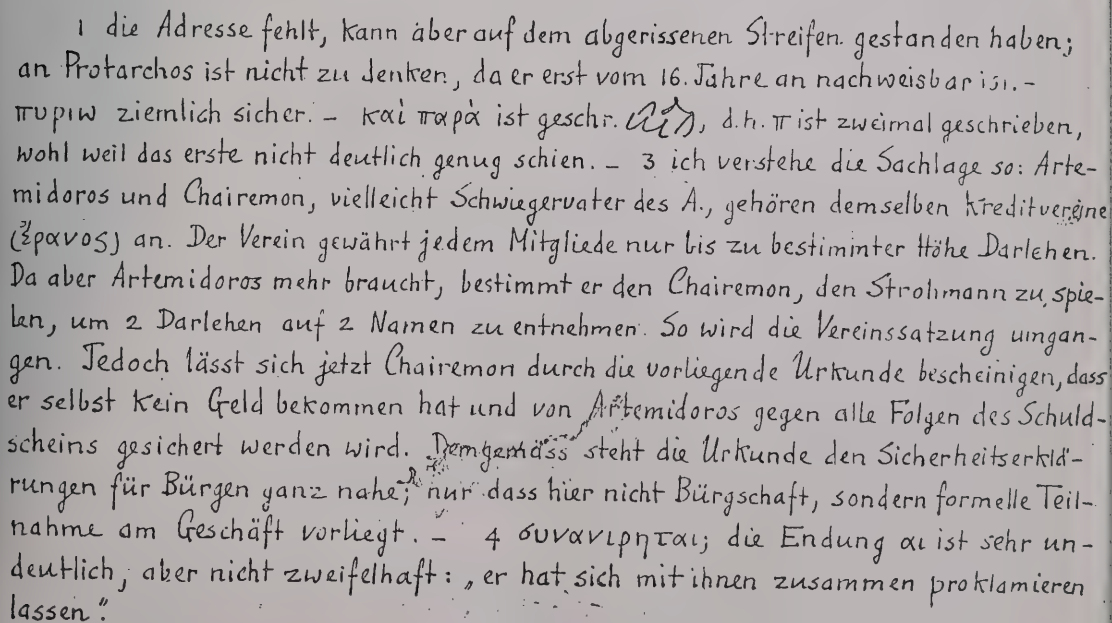 1 die Adresse fehlt, kann aber auf dem abgerissenen Streifen gestanden haben;
an Protarchos ist nicht zu denken, da er erst vom 16. Jahre an nachweisbar ist. –
πυριω ziemlich sicher. – καὶ παρὰ ist geschr. , d.h. π ist zweimal geschrieben,
wohl weil das erste nicht deutlich genug schien. – 3 ich verstehe die Sachlage so: Arte-
midoros und Chairemon, vielleicht Schwiegervater des A., gehören demselben Kreditvereine
(ἔρανος) an. Der Verein gewährt jedem Mitgliede nur bis zu bestimmter Höhe Darlehen.
Da aber Artemidoros mehr braucht, bestimmt er den Chairemon, den Strohmann zu spie-
len, um 2 Darlehen auf 2 Namen zu entnehmen. So wird die Vereinssatzung umgan-
gen. Jedoch lässt sich jetzt Chairemon durch die vorliegende Urkunde bescheinigen, dass
er selbst kein Geld bekommen hat und von Artemidoros gegen alle Folgen des Schuld-
scheins gesichert werden wird. Demgemäss steht die Urkunde den Sicherheitserklä-
rungen für Bürgen ganz nahe; nur dass hier nicht Bürgschaft, sondern formelle Teil-
nahme am Geschäft vorliegt. – 4 συνανιρηται; die Endung αι ist sehr un-
deutlich, aber nicht zweifelhaft: „er hat sich mit ihnen zusammen proklamieren
lassen."